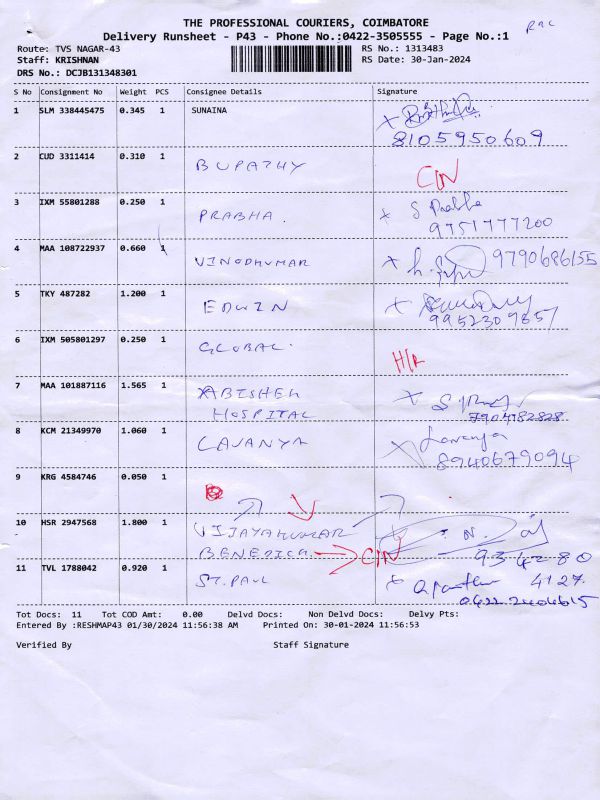 THE PROFESSIONAL COURIERS, COIMBATORE
Delivery Runsheet - P43 - Phone No.:0422-3505555 - Page No.:1
Route: TVS NAGAR-43 RS No.: 1313483
Staff: KRISHNAN RS Date: 30-Jan-2024
DRS No.: DCJB131348301
S No Consignment No Weight PCS Consignee Details Signature
1 SLM 338445475 0.345 1 SUNAINA
8105950609
2 CUD 3311414 0.310 1 BUPATHY CIN
3 IXM 55801288 0.250 1 PRABHA. S Prabha
9751777200
4 MAA 108722937 0.660 1 VINODHUMAR 9790686155
5 TKY 487282 1.200 1 EDWIN
9952309857
6 IXM 505801297 0.250 1 GLOBAL. H/R
7 MAA 101887116 1.565 1 ABISHEK
HOSPITAL 7904182828
8 KCM 21349970 1.060 1 LAVANYA Lavanya
8940679094
9 KRG 4584746 0.050 1
10 HSR 2947568 1.800 1 VIJAYAKUMAR
BENEDICA CIN 934280
11 TVL 1788042 0.920 1 ST. PAUL 4127.
0422.2404615
Tot Docs: 11 Tot COD Amt: 0.00 Delvd Docs: Non Delvd Docs: Delvy Pts:
Entered By :RESHMAP43 01/30/2024 11:56:38 AM Printed On: 30-01-2024 11:56:53
Verified By Staff Signature